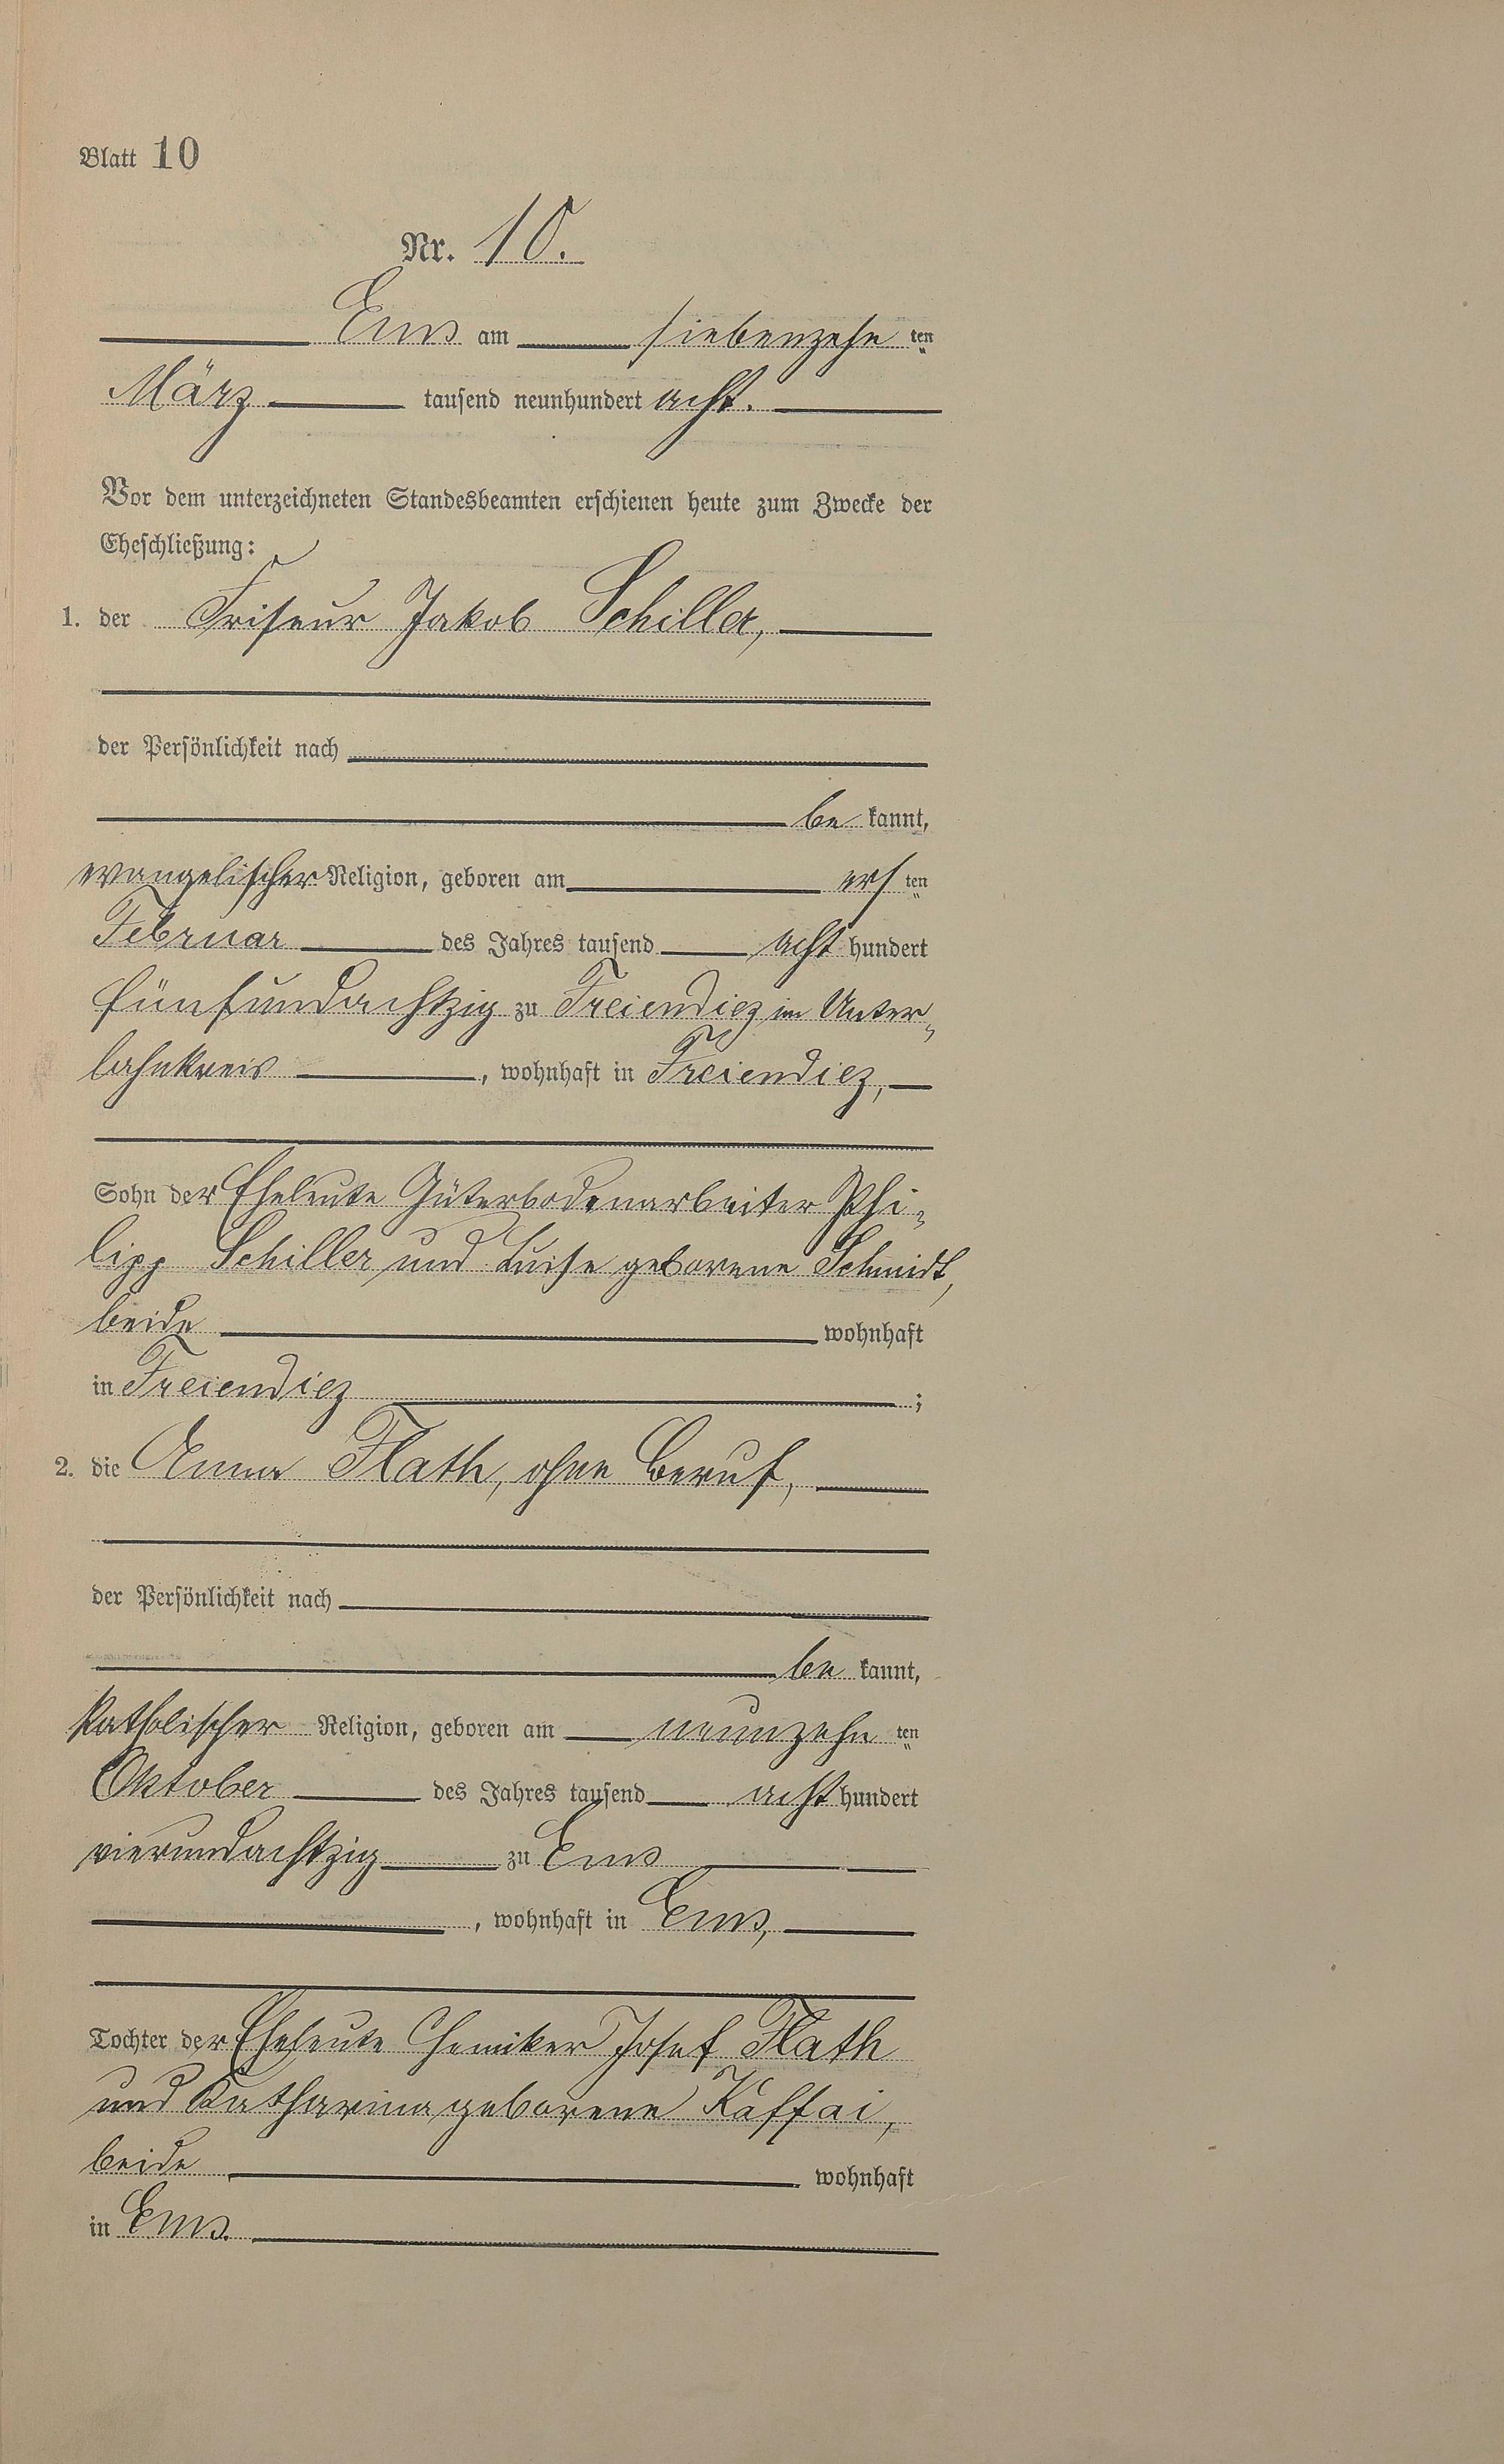 Blatt 10
Nr. 10.
Ems am siebenzehnten
März tausend neunhundert acht.
Vor dem unterzeichneten Standesbeamten erschienen heute zum Zwecke der
Eheschließung:
1. der Friseur Jakob Schiller,
der Persönlichkeit nach
be kannt,
evangelischer Religion, geboren am ersten
Februar des Jahres tausend acht hundert
fünfundachtzig zu Freiendiez im Unter-
lahnkreis, wohnhaft in Freiendiez,
Sohn der Eheleute Güterbodenarbeiter Phi-
lipp Schiller und Luise geborene Schmidt,
beide wohnhaft
in Freiendiez ;
2. die Anna Flath, ohne Beruf,
der Persönlichkeit nach
be kannt,
katholischer Religion, geboren am neunzehnten
Oktober des Jahres tausend acht hundert
vierundachtzig zu Ems
, wohnhaft in Ems,
Tochter der Eheleute Chemiker Josef Flath
und Katharina geborene Kaffai,
beide wohnhaft
in Ems.